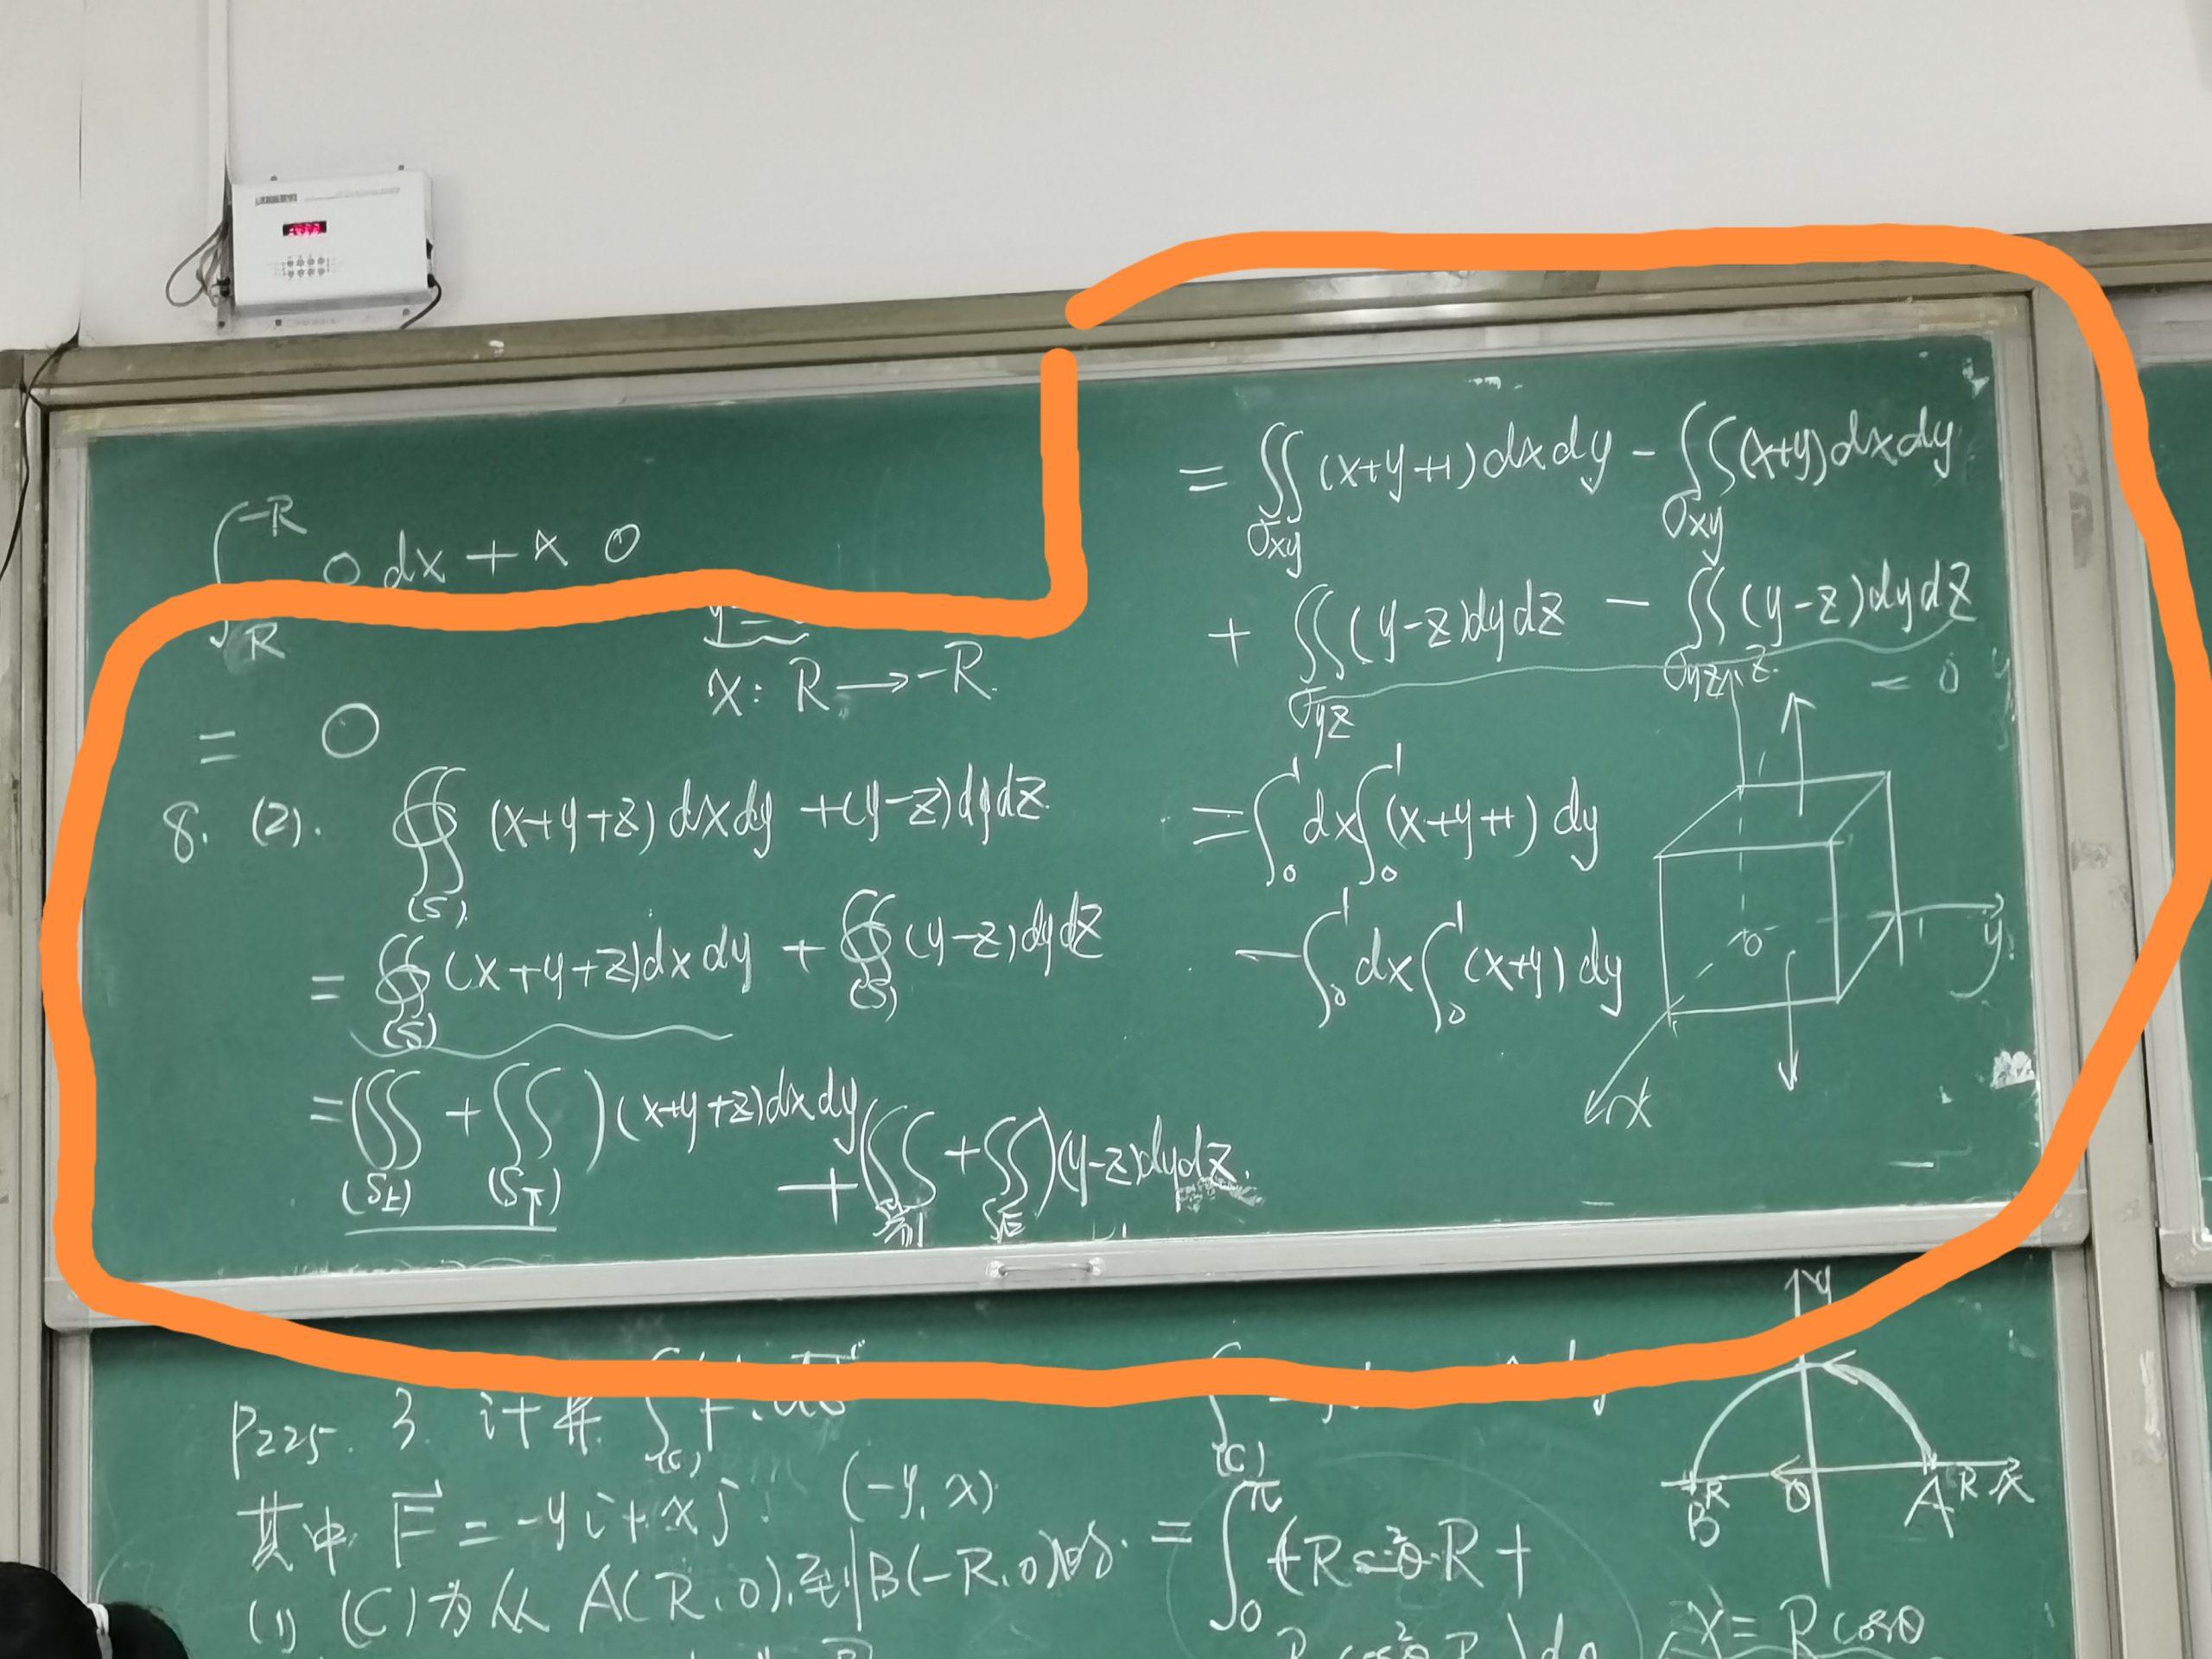 ∫_R^{-R} 0 dx + x 0
x: R → -R
= 0
8. (2). ∯_(S) (x+y+z) dxdy + (y-z) dydz.
= ∯_(S) (x+y+z) dxdy + ∯_(S) (y-z) dydz
= (∬_(S上) + ∬_(S下)) (x+y+z) dxdy
+ (∬_S前 + ∬_S后) (y-z) dydz.
= ∬_σxy (x+y+1) dxdy - ∬_σxy (x+y) dxdy
+ ∬_σyz (y-z) dydz - ∬_σyz (y-z) dydz
= 0
= ∫_0^1 dx ∫_0^1 (x+y+1) dy
- ∫_0^1 dx ∫_0^1 (x+y) dy
z
0
1
y
x
P225. 3. 计算 ∫_(C)
其中 F⃗ = -yi + xj (-y, x)
(1) (C) 为从 A(R, 0), 到 B(-R, 0) 的
∫_(C)
= ∫_0^π (+R sin²θ·R +
R cos²θ R) dθ
y
B
-R
0
A
R
x
x = R cosθ